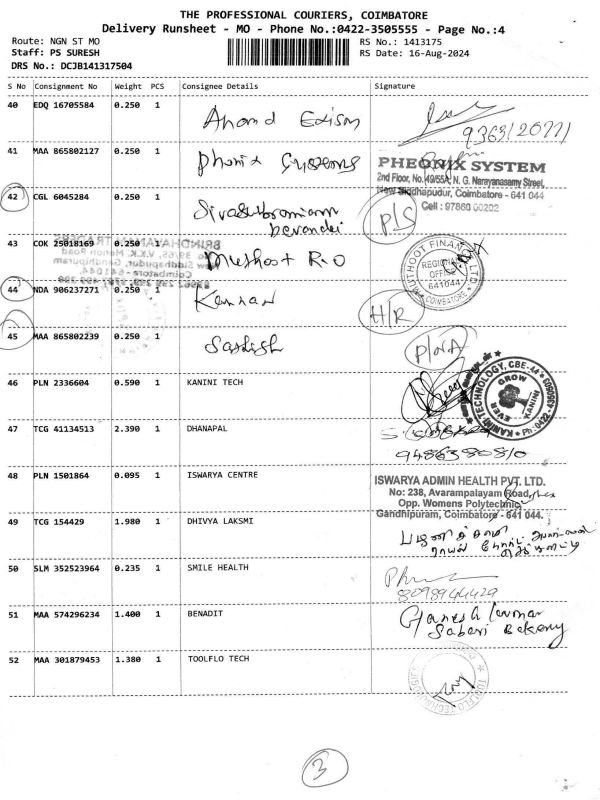 THE PROFESSIONAL COURIERS, COIMBATORE
Delivery Runsheet - MO - Phone No.:0422-3505555 - Page No.:4
Route: NGN ST MO
RS No.: 1413175
Staff: PS SURESH
RS Date: 16-Aug-2024
DRS No.: DCJB141317504
S No Consignment No Weight PCS Consignee Details Signature
40 EDQ 16705584 0.250 1 Anand Edison
41 MAA 865802127 0.250 1
PHEONIX SYSTEM
2nd Floor, No.49/55A, N. G. Narayanasamy Street,
New Siddhapudur, Coimbatore - 641 044
Cell : 97860 00202
42 CGL 6045284 0.250 1 Sivasubramiam
P/S
43 COK 25018169 0.250 1 Muthoot
MUTHOOT FINANCE LTD.
REGIONAL
OFFICE
641044
COIMBATORE
44 NDA 906237271 0.250 1 Kannan
H/R
45 MAA 865802239 0.250 1 Sathish
P/NA
46 PLN 2336604 0.590 1 KANINI TECH
KANINI TECHNOLOGY, CBE-44
EVER GROW KANINI
47 TCG 41134513 2.390 1 DHANAPAL
9486380810
48 PLN 1501864 0.095 1 ISWARYA CENTRE
ISWARYA ADMIN HEALTH PVT. LTD.
No: 238, Avarampalayam Road,
Opp. Womens Polytechnic,
Gandhipuram, Coimbatore - 641 044.
49 TCG 154429 1.980 1 DHIVYA LAKSMI
50 SLM 352523964 0.235 1 SMILE HEALTH
8098944429
51 MAA 574296234 1.400 1 BENADIT
Ganesh Kumar
Sabari Bakery
52 MAA 301879453 1.380 1 TOOLFLO TECH
3